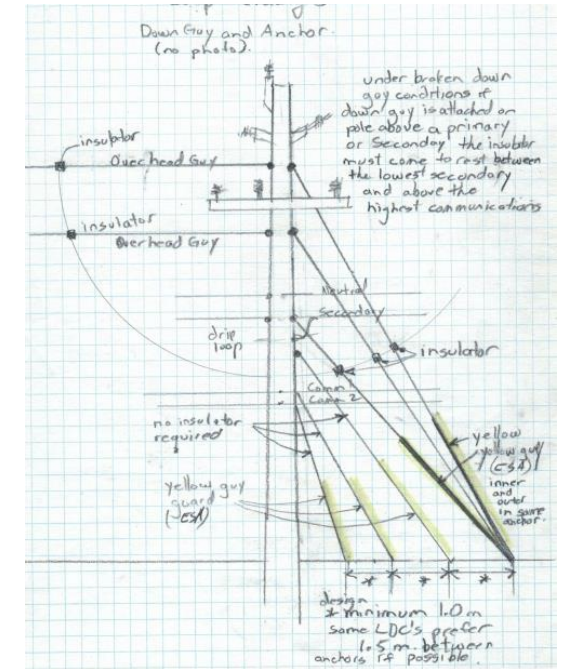 Down Guy and Anchor.
(no photo).
under broken down
guy conditions if
down guy is attached on
pole above a primary
or Seconday the insulator
must come to rest between
the lowest secondary
and above the
highest communications
insulator
Overhead Guy
insulator
Overhead Guy
Neutral
Secondary
drip
loop
insulator
Comm 1
Comm 2
no insulator
required
yellow
yellow guy
(ESA)
inner
and
outer
in same
anchor.
yellow guy
guard
(ESA)
* * *
design
* minimum 1.0 m
some LDC's prefer
1.5 m. between
anchors if possible